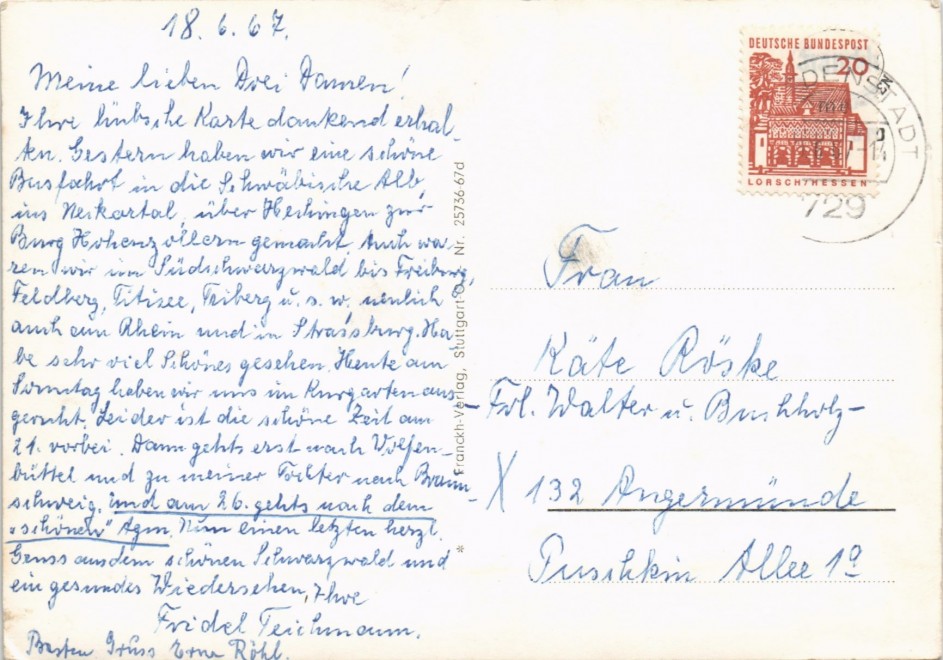 18. 6. 67.
Meine lieben Drei Damen!
Ihre hübsche Karte dankend erhal-
ten. Gestern haben wir eine schöne
Busfahrt in die Schwäbische Alb,
ins Neckartal, über Hechingen zur
Burg Hohenzollern gemacht. Auch wa-
ren wir im Südschwarzwald bis Freiburg,
Feldberg, Titisee, Triberg u. s. w. neulich
auch am Rhein und in Strassburg. Ha-
be sehr viel Schönes gesehen. Heute am
Sonntag haben wir uns im Kurgarten aus-
geruht. Leider ist die schöne Zeit am
21. vorbei. Dann gehts erst nach Wolfen-
büttel und zu meiner Tochter nach Braun-
schweig, und am 26. gehts nach dem
"schönen" Agm. Nun einen letzten herzl.
Gruss aus dem schönen Schwarzwald und
ein gesundes Wiedersehen, Ihre
Fridel Teichmann.
Besten Gruss Erna Röhl.
* Franckh-Verlag, Stuttgart-O, Nr. 25736 67d
DEUTSCHE BUNDESPOST
20
LORSCH/HESSEN
DENSTADT
729
Frau
Käte Röske
Frl. Walter u. Buchholz-
X 132 Angermünde
Puschkin Allee 1a